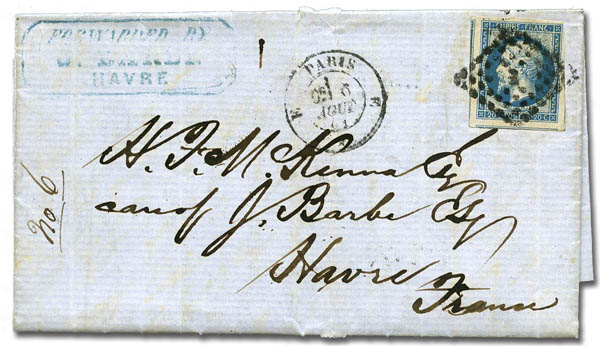 FORWARDED BY
J. BARBE
HAVRE
PARIS
AOUT
EMPIRE FRANC.
20 C
20 C
No. 6
H. F. McKenna Esq
care of J. Barbe Esq
Havre
France